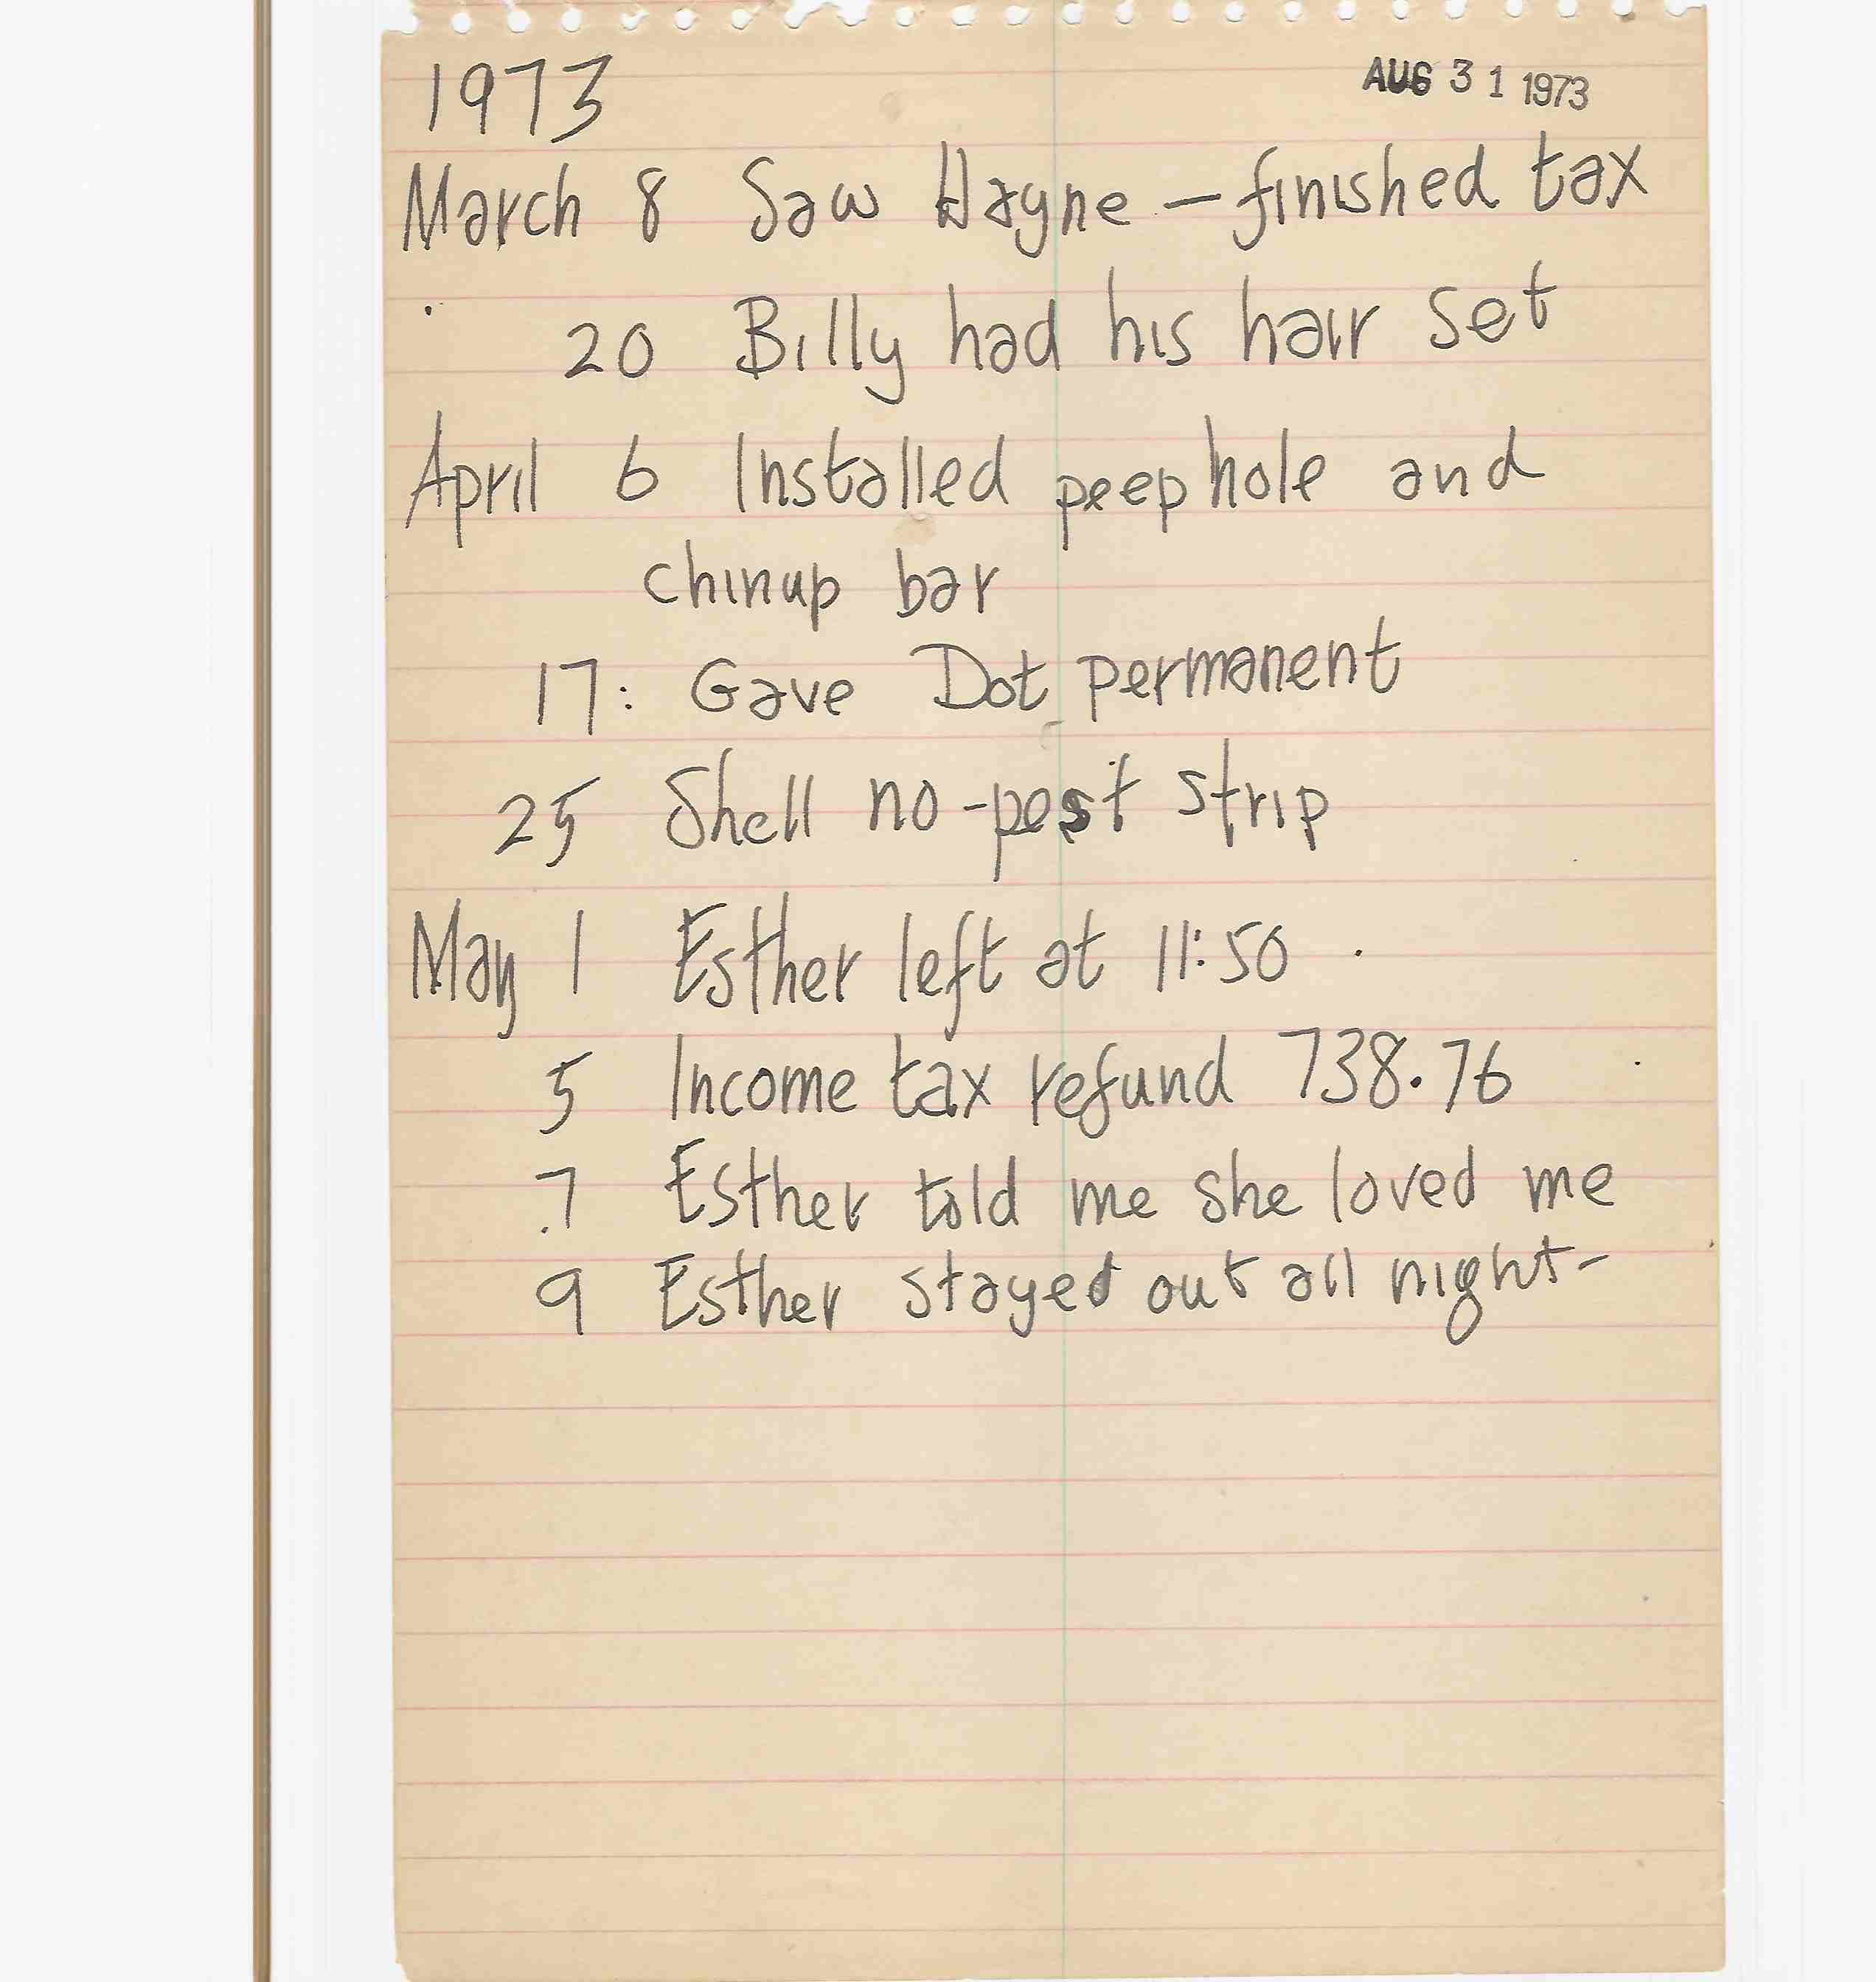 1973 AUG 31 1973
March 8 Saw Wayne – finished tax
20 Billy had his hair set
April 6 Installed peep hole and
chinup bar
17: Gave Dot permanent
25 Shell no-pest strip
May 1 Esther left at 11:50
5 Income tax refund 738.76
7 Esther told me she loved me
9 Esther stayed out all night-